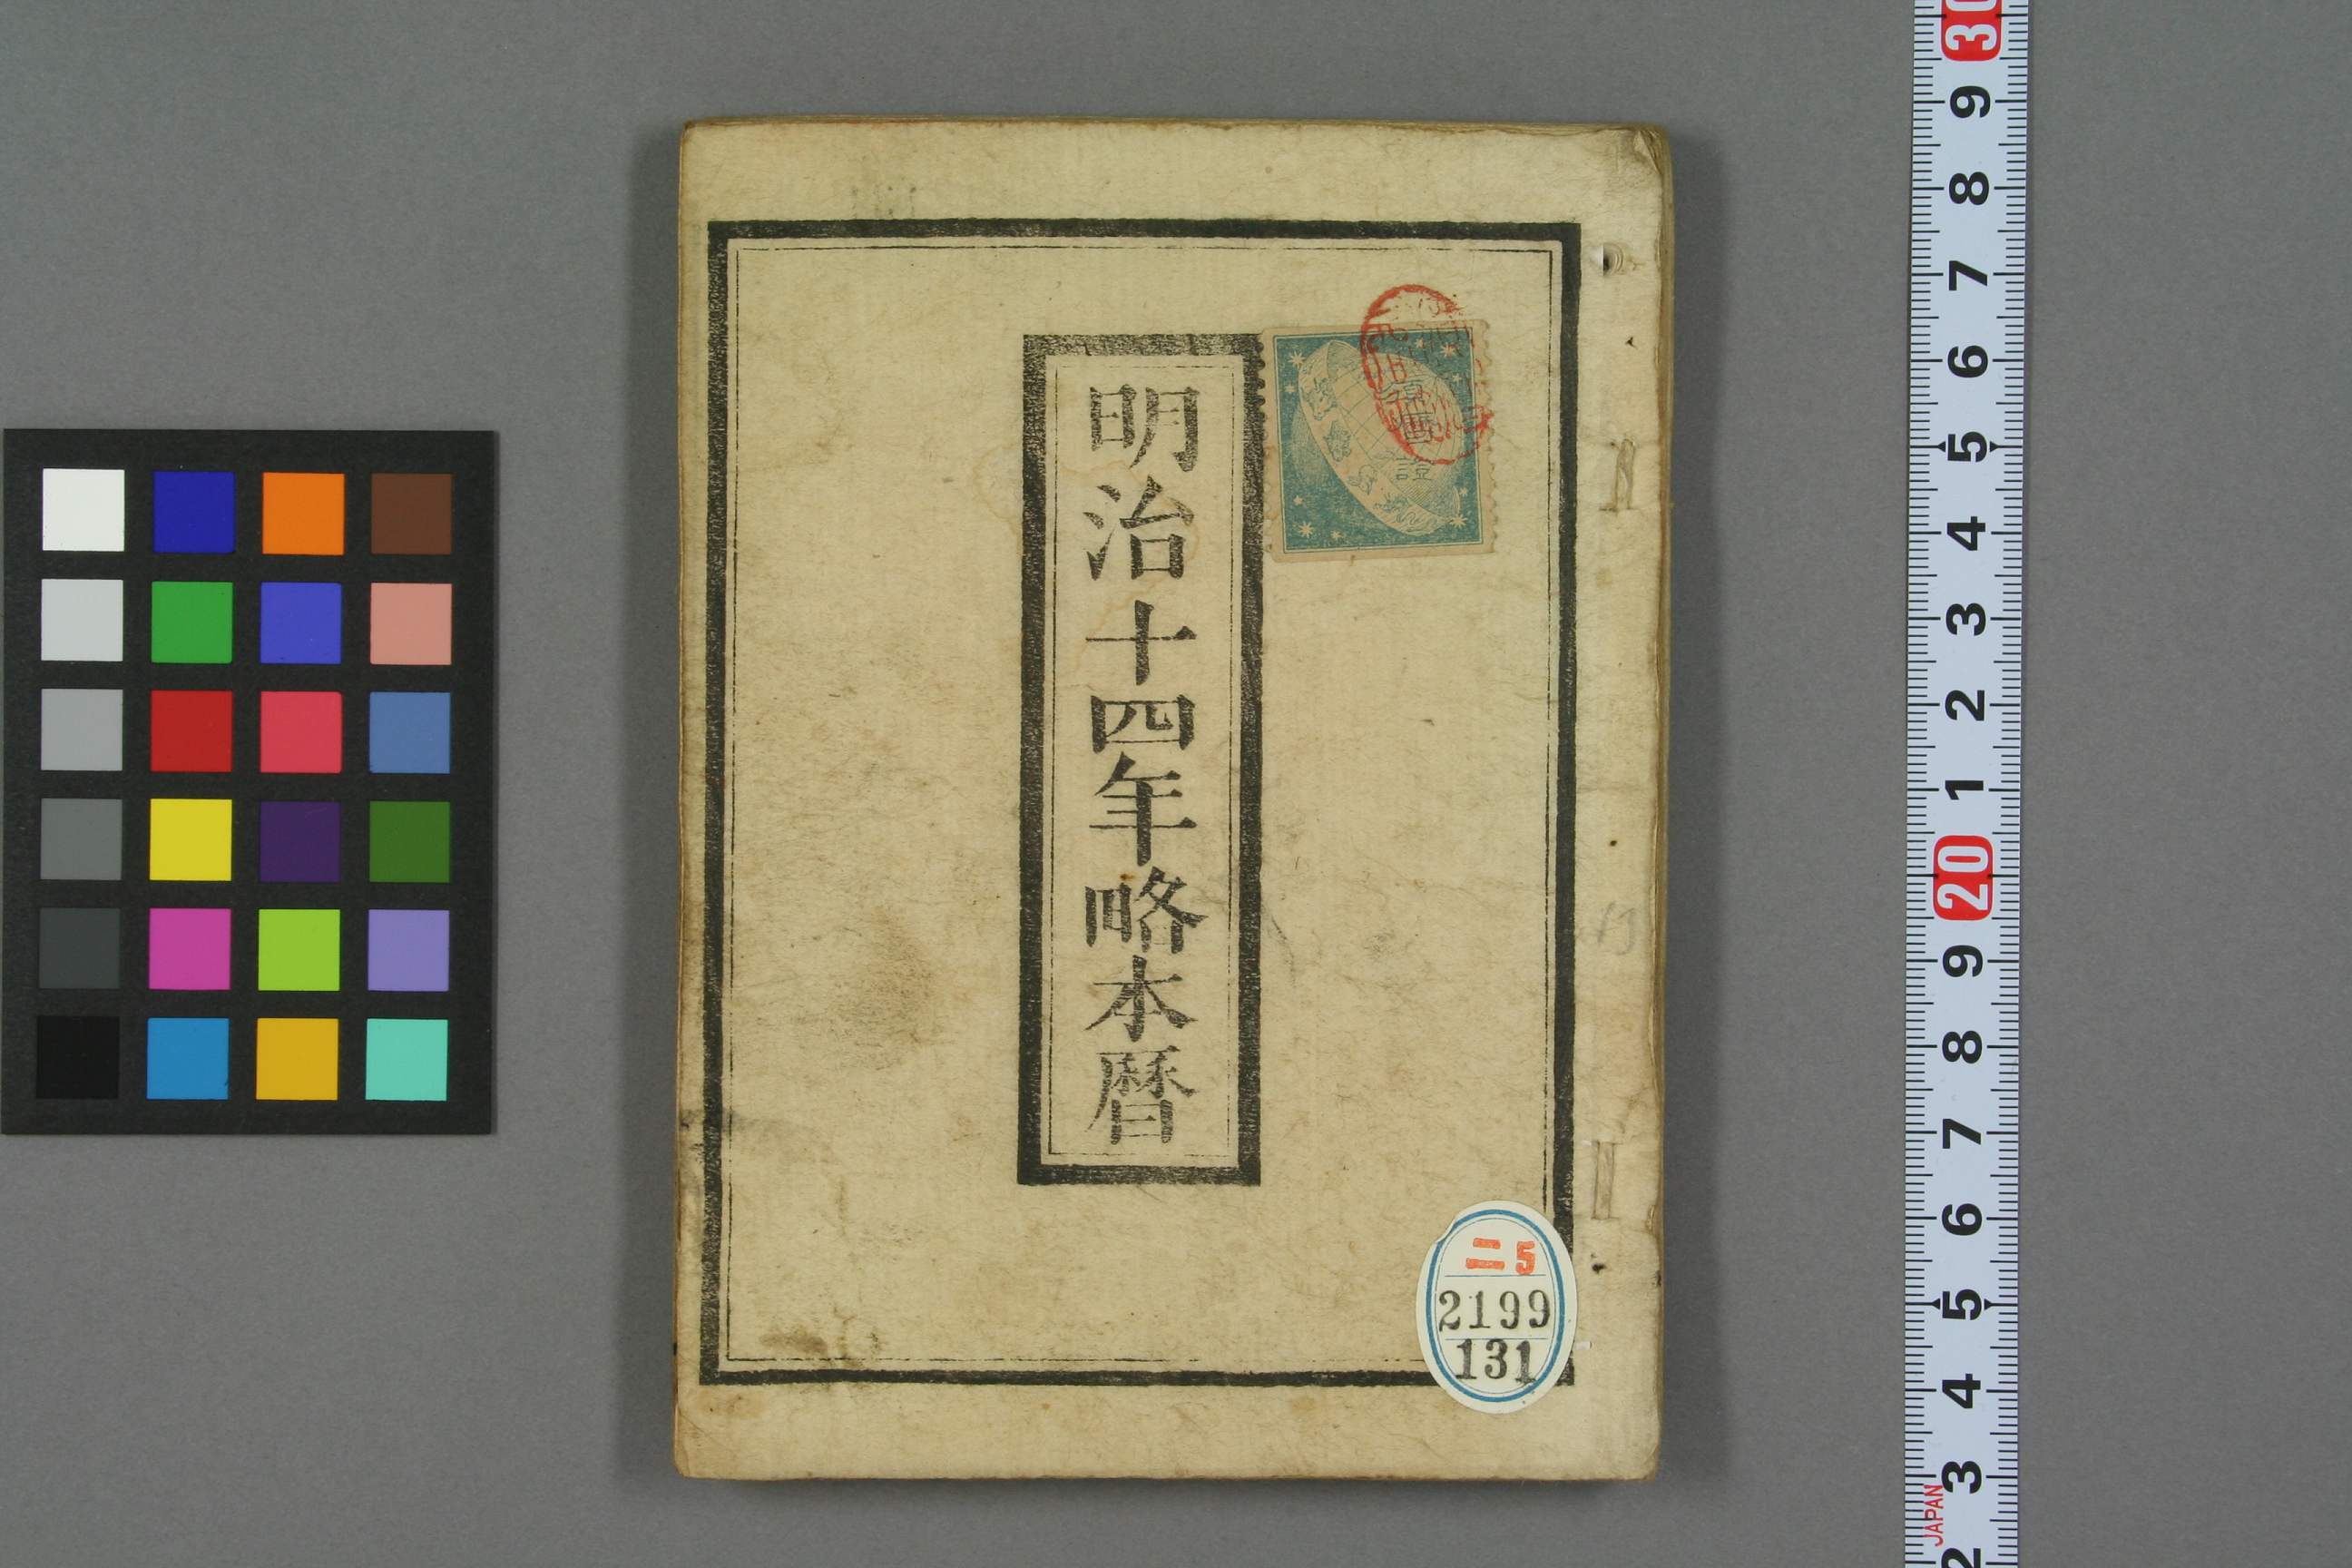 明治十四年略本暦
頒暦證
二5
2199
131
30
9
8
7
6
5
4
3
2
1
20
9
8
7
6
5
4
3
2
JAPAN